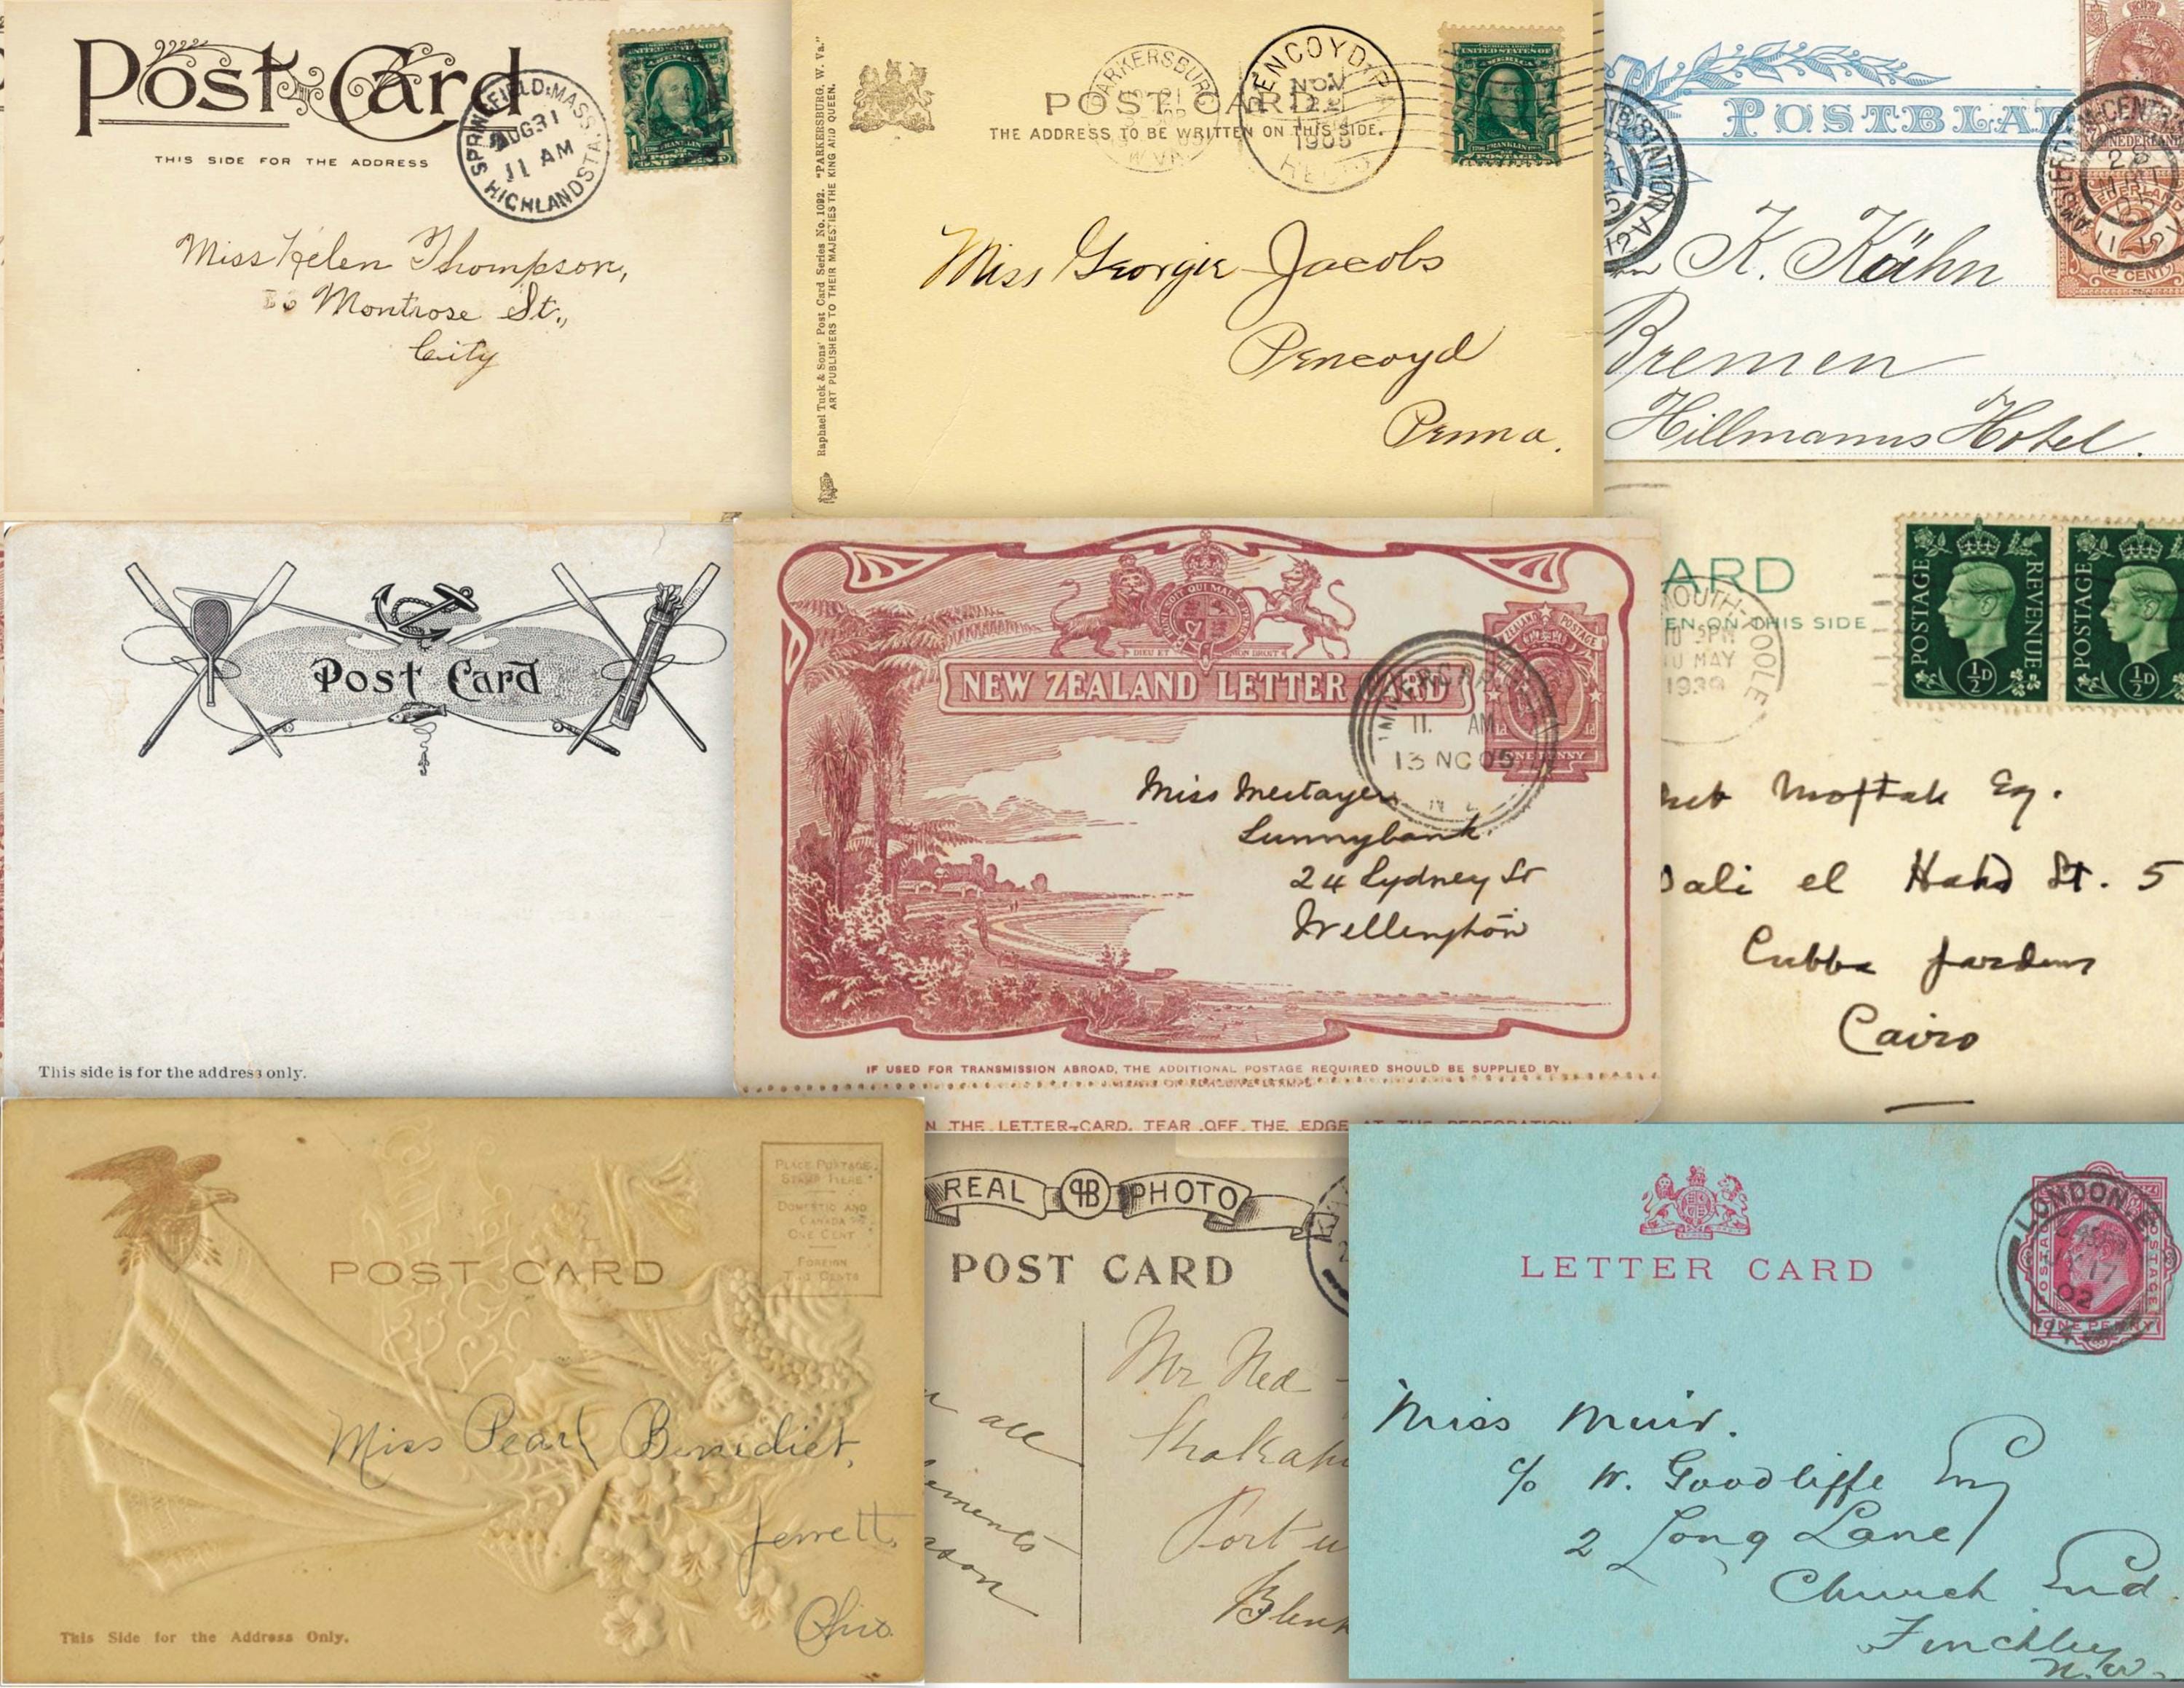 Post Card
THIS SIDE FOR THE ADDRESS
SPRINGFIELD, MASS.
AUG 31
11 AM
HIGHLAND STA.
UNITED STATES OF
AMERICA
1 FRANKLIN 1
POSTAGE
Miss Helen Thompson,
Montrose St.,
City
Raphael Tuck & Sons' Post Card Series No. 1092. "PARKERSBURG, W. Va."
ART PUBLISHERS TO THEIR MAJESTIES THE KING AND QUEEN.
POST CARD.
THE ADDRESS TO BE WRITTEN ON THIS SIDE.
PARKERSBURG
W. VA.
PENCOYD, PA.
NOV
22
1905
REC'D
UNITED STATES OF
AMERICA
1 FRANKLIN 1
POSTAGE
Miss Georgie Jacobs
Pencoyd
Penna.
POSTBLAD
NEDERLAND
2
(2 CENT)
K. Kähn
Bremen
Hillmanns Hotel.
Post Card
This side is for the address only.
DIEU ET MON DROIT
NEW ZEALAND LETTER CARD
ZEALAND POSTAGE
ONE PENNY
INVERCARGILL
11. AM
13 NO 05
N Z
Miss Mestayer
Sunnybank
24 Sydney St
Wellington
IF USED FOR TRANSMISSION ABROAD, THE ADDITIONAL POSTAGE REQUIRED SHOULD BE SUPPLIED BY
MEANS OF ADHESIVE STAMPS
N THE LETTER-CARD, TEAR OFF THE EDGE AT THE PERFORATION
ARD
EN ON THIS SIDE
MOUTH-POOLE
10 MAY
1939
POSTAGE REVENUE
½D
POSTAGE
½D
Moftah Esq.
ali el St. 5
Cubba Gardens
Cairo
POST CARD
PLACE POSTAGE
STAMP HERE
DOMESTIC AND
CANADA
ONE CENT
FOREIGN
TWO CENTS
Miss Pearl Benedict,
Jewett,
Ohio.
This Side for the Address Only.
REAL PB PHOTO
POST CARD
all
Mr Ned
Port
LETTER CARD
LONDON. E.
17
02
POSTAGE POSTAGE
ONE PENNY
Miss Muir.
c/o W. Goodliffe Esq
2 Long Lane
Church End
Finchley
N.W.